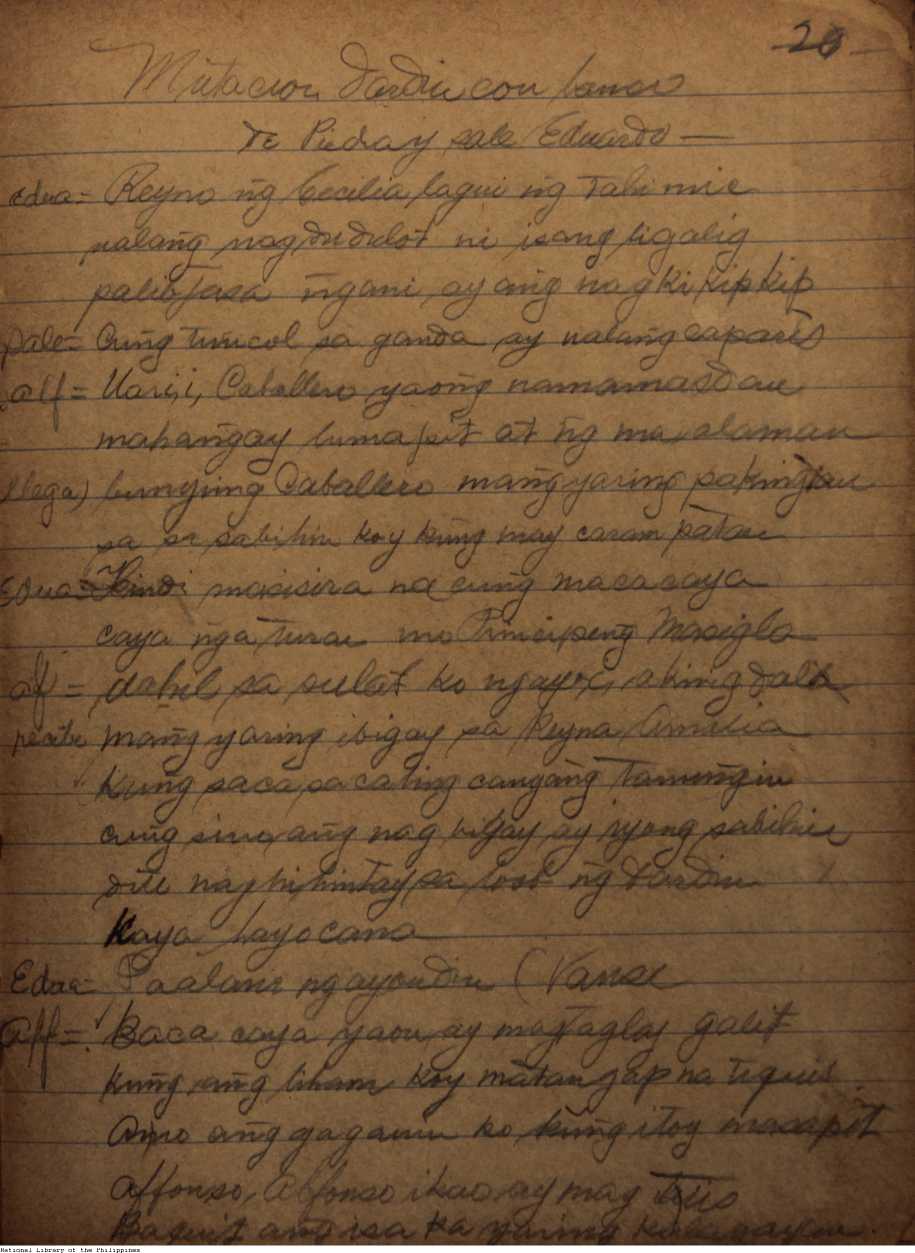 -20-
Mutacion Jardin con banco
de Piedra y sale Eduardo —
Edua= Reyno ng Cecilia lagui ng tahimic
ualang nagdudulot ni isang ligalig
palibjasa ngani ay ang nagkikipkip
sale= Cung tuncol sa ganda ay ualang caparis
Alf= Uari,i, Caballero yaong namamasdan
mahangay lumapit at ng maalaman
llega) bunying Caballero mangyaring pakingan
sa sasabihin koy kung may caram patan
Edua= Hindi masisira na cung macacaya
caya nga turan mo Principeng Masigla
alf= dahil sa sulat ko ngayon, aking dala
mangyaring ibigay sa Reyna
kung saca sacaling cangang tanungin
cung sino ang nag bigay ay iyong sabihin
dili naghihintay sa loob ng Jardin
Kaya hayo cana
Edua= Paalam ngayondin (Vanse
Alf= Baca caya yaon ay magtaglay galit
kung ang liham koy matangap na tiquis
Ano ang gagauin ko kung itoy masapit
Alfonso, Alfonso ikao ay may
Baquit ang isa ka yaring
National Library of the Philippines